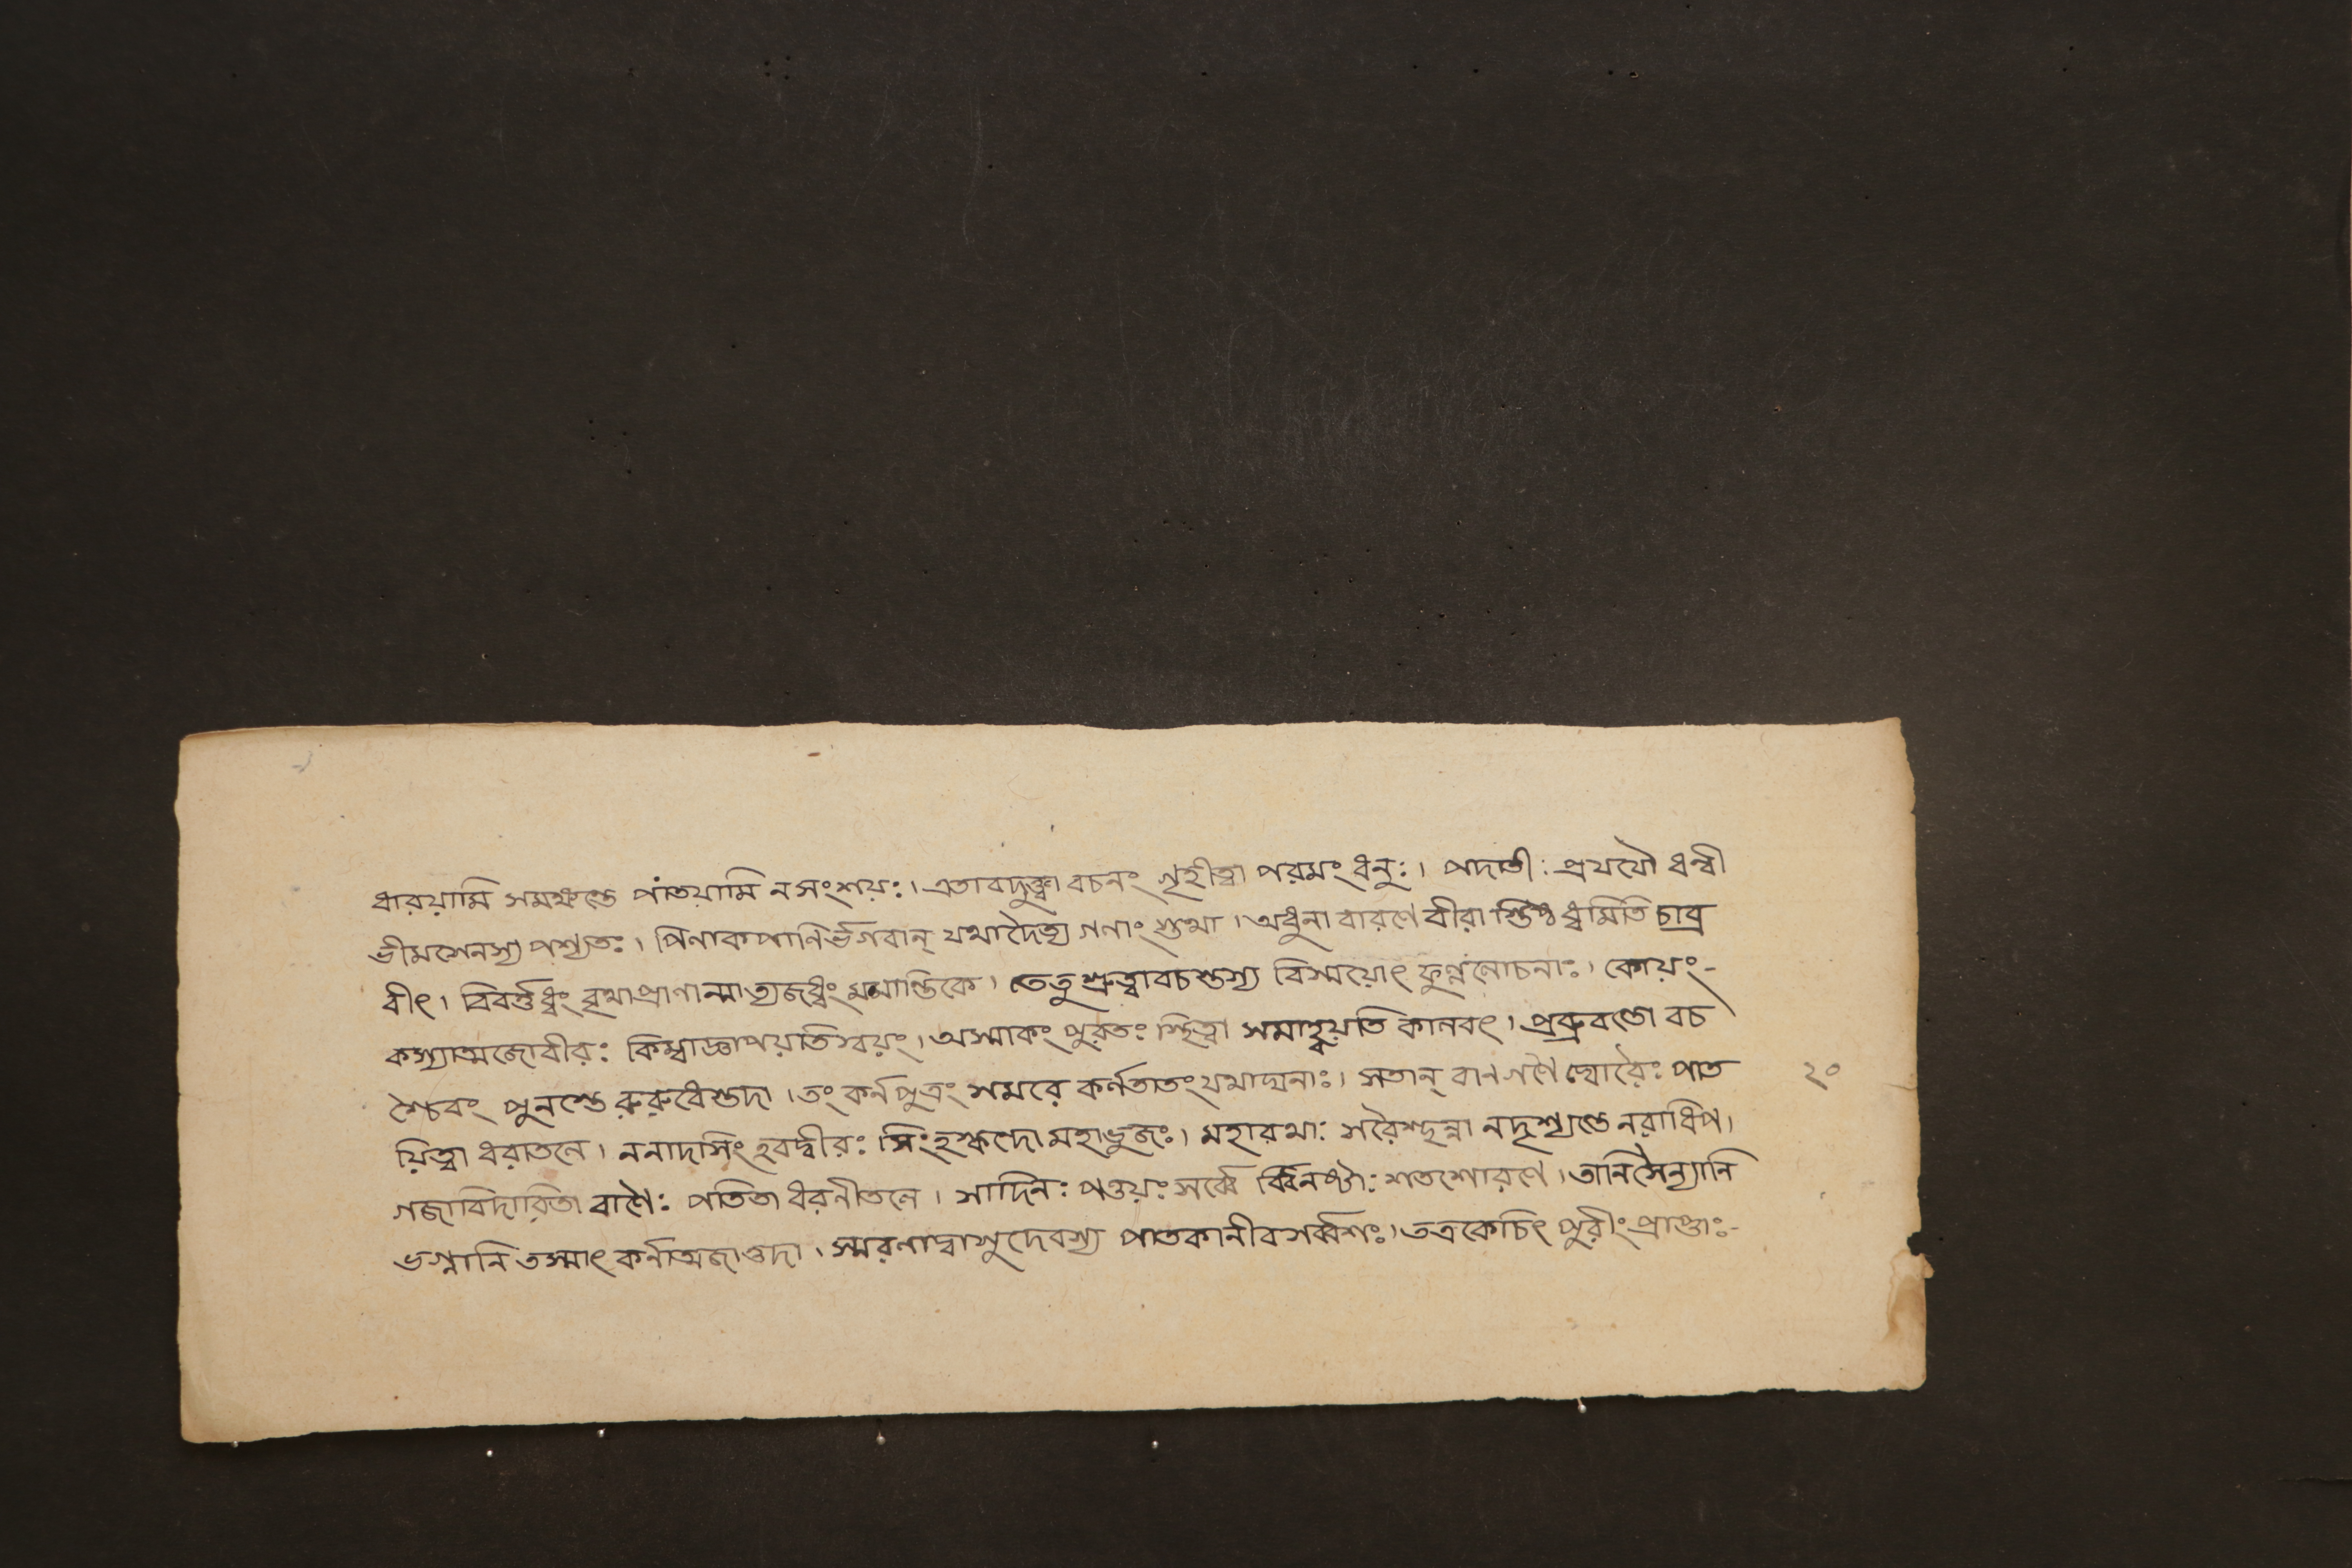 ধারয়ামি সমক্ষন্তে পাতয়ামি ন সংশয়ঃ। এতাবদুক্ত্বা বচনং গৃহীত্বা পরমং ধনুঃ। পদাতীঃ প্রযযৌ ধন্বী
ভীমসেনস্য পশ্যতঃ। পিণাকপাণির্ভগবান্ যথাদৈত্য গণাং স্তথা। অধুনা বারণে বীরা স্তিষ্ঠ ধ্বমিতি চাব্র
বীৎ। বিবর্ত্তধ্বং বৃথাপ্রাণান্মাত্যজধ্বং মমান্তিকে। তেতু শ্রুত্বাবচস্তস্য বিস্ময়োৎ ফুল্ললোচনাঃ। কোয়ং-
কস্যাত্মজোবীরঃ কিম্বাজ্ঞাপয়তিস্বয়ং। অস্মাকং পুরতঃ স্থিত্বা সমাহ্বয়তি কালবৎ। প্রব্রুবন্তো বচ
শ্চৈবং পুনস্তে রুরুধেস্তদা। তং কর্নপুত্রং সমরে কর্ণতাতং যথাত্মনাঃ। সতান্ বানগণৈ র্ঘোরৈঃ পাত
য়িত্বা ধরাতলে। ননাদসিং হবদ্বীরঃ সিংহস্কন্দো মহাভুজঃ। মহারথাঃ সরৈশ্ছন্না নদৃশ্যন্তে নরাধিপ।
গজাবিদারিতা বাণৈঃ পতিতা ধরনীতলে। সাদিনঃ পত্তয়ঃ সর্ব্বে বিনষ্টাঃ শতশোরণে। তানিসৈন্যানি
ভগ্নানি তস্মাৎ কর্নাত্মজাত্তদা। স্মরণাদ্বাসুদেবস্য পাতকানীব সর্ব্বশঃ। তত্রকেচিৎ পুরীং প্রাপ্তাঃ-
২০